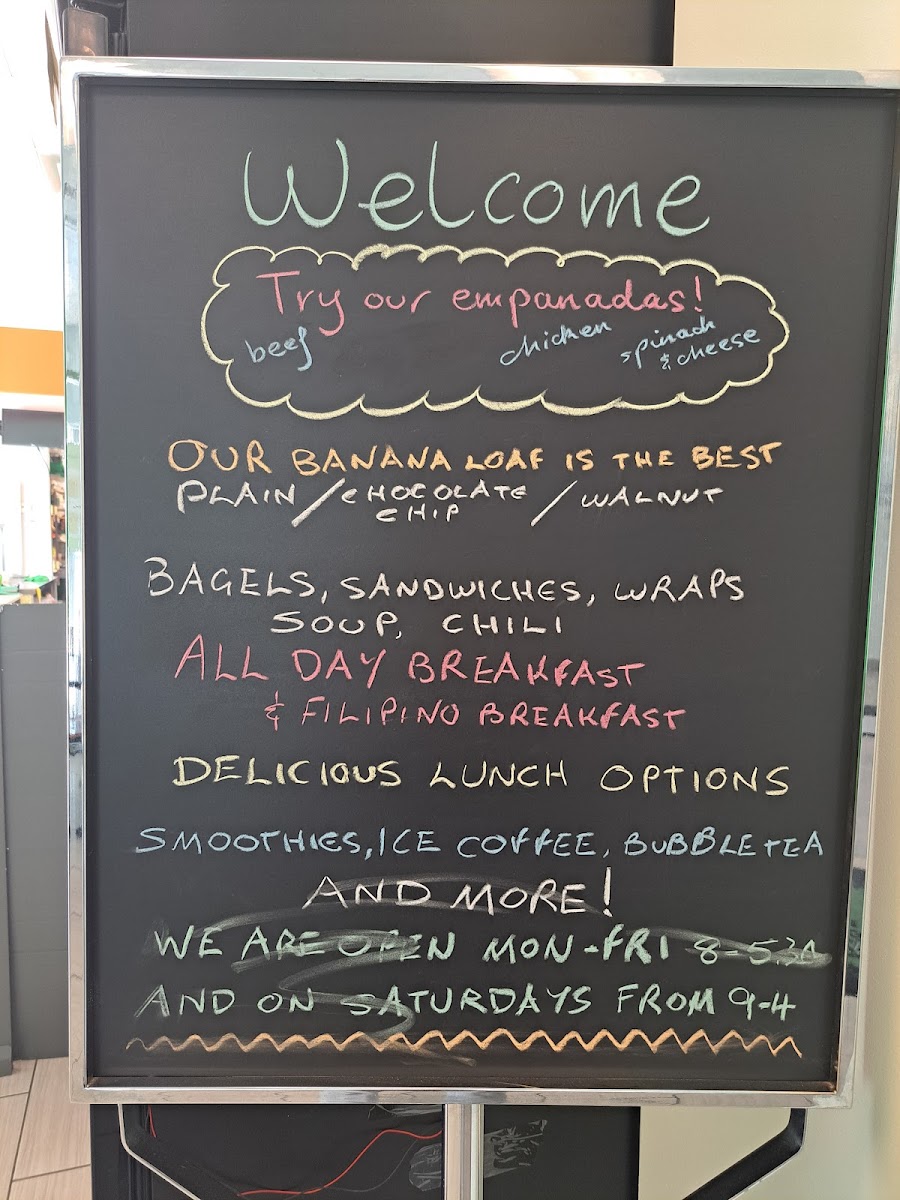 Welcome
Try our empanadas!
beef chicken spinach
& cheese
OUR BANANA LOAF IS THE BEST
PLAIN / CHOCOLATE / WALNUT
CHIP
BAGELS, SANDWICHES, WRAPS
SOUP, CHILI
ALL DAY BREAKFAST
& FILIPINO BREAKFAST
DELICIOUS LUNCH OPTIONS
SMOOTHIES, ICE COFFEE, BUBBLE TEA
AND MORE!
WE ARE OPEN MON-FRI
AND ON SATURDAYS FROM 9-4